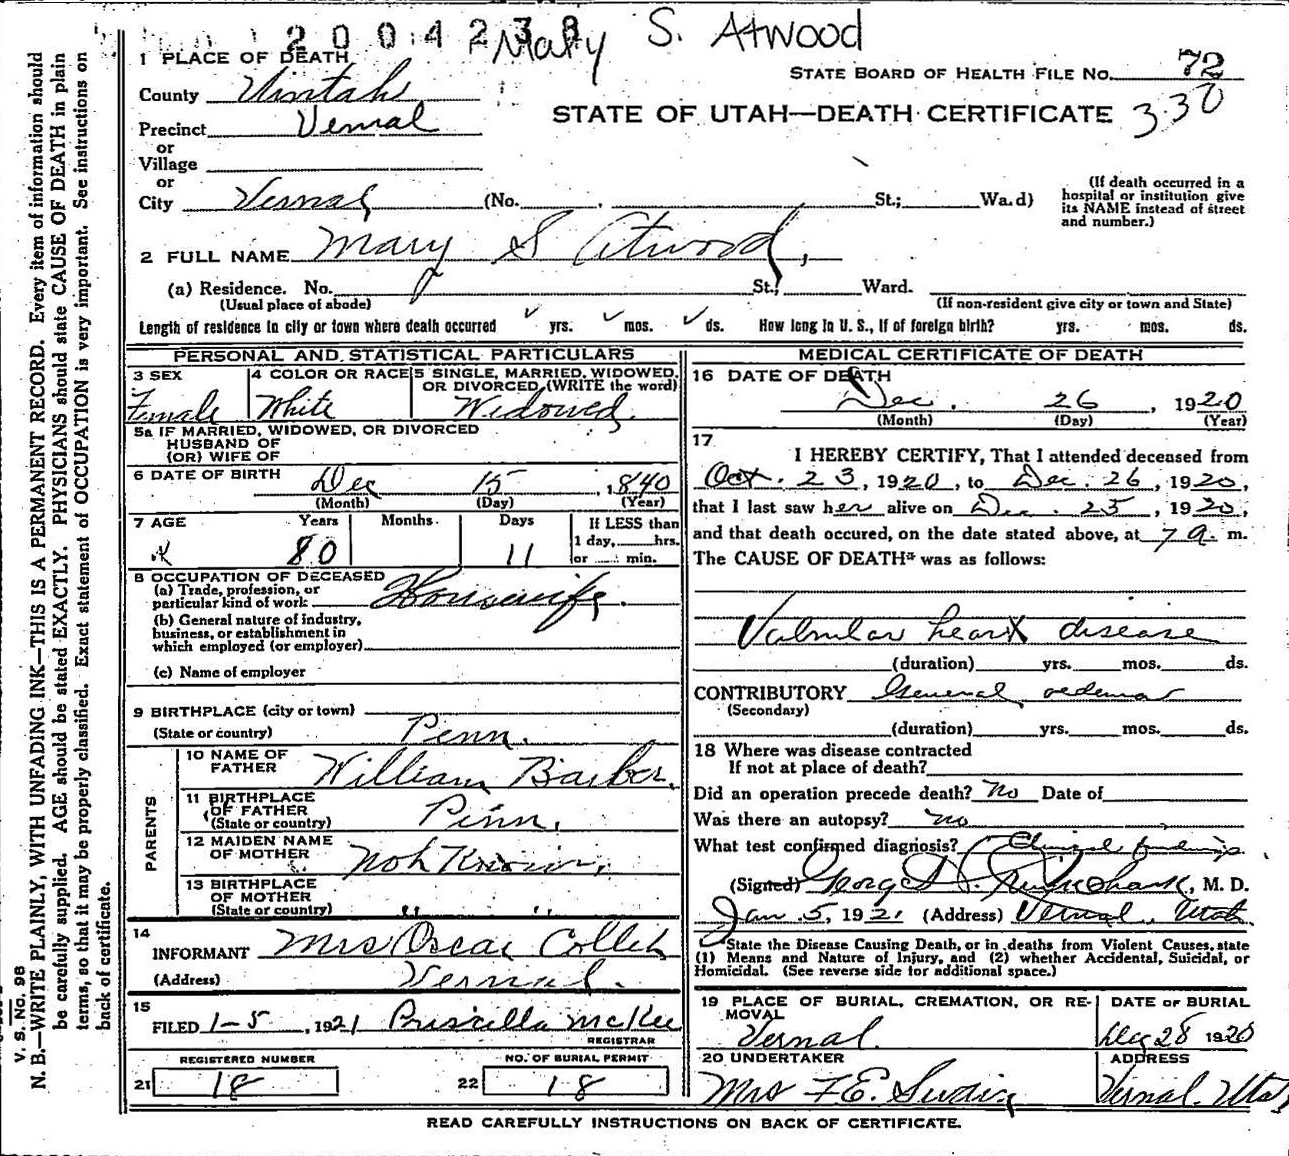 2004238
Mary S. Atwood
1 PLACE OF DEATH
STATE BOARD OF HEALTH FILE No. 72
County Uintah
STATE OF UTAH—DEATH CERTIFICATE 330
Precinct Vernal
or
Village
or
City Vernal (No. St.; Ward)
(If death occurred in a
hospital or institution give
its NAME instead of street
and number.)
2 FULL NAME Mary S Atwood,
(a) Residence. No. St., Ward.
(Usual place of abode) (If non-resident give city or town and State)
Length of residence in city or town where death occurred yrs. mos. ds. How long in U. S., if of foreign birth? yrs. mos. ds.
PERSONAL AND STATISTICAL PARTICULARS
3 SEX
Female
4 COLOR OR RACE
White
5 SINGLE, MARRIED, WIDOWED,
OR DIVORCED, (WRITE the word)
Widowed.
5a IF MARRIED, WIDOWED, OR DIVORCED
HUSBAND OF
(OR) WIFE OF
6 DATE OF BIRTH Dec 15, 1840
(Month) (Day) (Year)
7 AGE Years Months Days If LESS than
1 day, hrs.
80 11 or min.
8 OCCUPATION OF DECEASED
(a) Trade, profession, or
particular kind of work Housewife.
(b) General nature of industry,
business, or establishment in
which employed (or employer)
(c) Name of employer
9 BIRTHPLACE (city or town)
(State or country) Penn.
PARENTS
10 NAME OF
FATHER William Barber.
11 BIRTHPLACE
OF FATHER
(State or country) Penn.
12 MAIDEN NAME
OF MOTHER Not Known.
13 BIRTHPLACE
OF MOTHER
(State or country) " "
14
INFORMANT Mrs Oscar Collett
(Address) Vernal.
15
FILED 1-5, 1921 Priscilla McKee
REGISTRAR
REGISTERED NUMBER NO. OF BURIAL PERMIT
21 18 22 18
MEDICAL CERTIFICATE OF DEATH
16 DATE OF DEATH
Dec. 26, 1920
(Month) (Day) (Year)
17
I HEREBY CERTIFY, That I attended deceased from
Oct. 23, 1920, to Dec. 26, 1920,
that I last saw her alive on Dec. 25, 1920,
and that death occured, on the date stated above, at 7 a. m.
The CAUSE OF DEATH* was as follows:
Valvular heart disease
(duration) yrs. mos. ds.
CONTRIBUTORY General oedema
(Secondary)
(duration) yrs. mos. ds.
18 Where was disease contracted
If not at place of death?
Did an operation precede death? No Date of
Was there an autopsy? no
What test confirmed diagnosis? Clinical findings
(Signed) George, M. D.
Jan. 5, 1921 (Address) Vernal, Utah
State the Disease Causing Death, or in deaths from Violent Causes, state
(1) Means and Nature of Injury, and (2) whether Accidental, Suicidal, or
Homicidal. (See reverse side for additional space.)
19 PLACE OF BURIAL, CREMATION, OR RE-
MOVAL
Vernal.
DATE OF BURIAL
Dec 28 1920
20 UNDERTAKER
Mrs F E
ADDRESS
Vernal. Utah
READ CAREFULLY INSTRUCTIONS ON BACK OF CERTIFICATE.
V. S. No. 98
N. B.—WRITE PLAINLY, WITH UNFADING INK—THIS IS A PERMANENT RECORD. Every item of information should
be carefully supplied. AGE should be stated EXACTLY. PHYSICIANS should state CAUSE OF DEATH in plain
terms, so that it may be properly classified. Exact statement of OCCUPATION is very important. See instructions on
back of certificate.